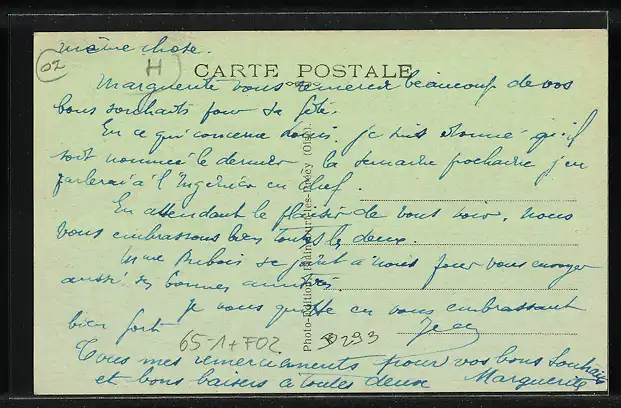 même chose.
02
H
CARTE POSTALE
Marguerite vous remercie beaucoup de vos
bons souhaits pour sa fête.
En ce qui concerne Louis, je suis étonné qu'il
soit nommé le dernier la semaine prochaine j'en
parlerai à l'Ingénieur en chef.
En attendant le plaisir de vous voir, nous
vous embrassons bien toutes les deux.
Mme Dubois se joint à nous pour vous envoyer
aussi ses bonnes amitiés
je vous quitte en vous embrassant
bien fort Jean
65-1+F02
D293
Tous mes remerciements pour vos bons souhaits
et bons baisers à toutes deux Marguerite
Photo-Édition (Oise).